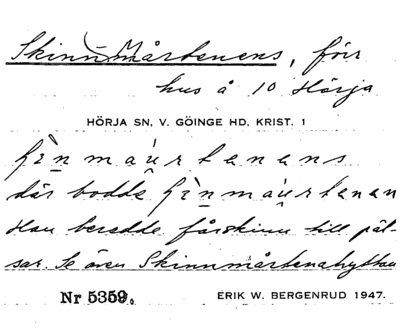 Skinnmårtenens, förr
hus å 10 Hörja
HÖRJA SN, V. GÖINGE HD, KRIST. 1
där bodde
Han beredde fårskinn till päl-
sar. Se även Skinnmårtenahyttan
Nr 5359.
ERIK W. BERGENRUD 1947.